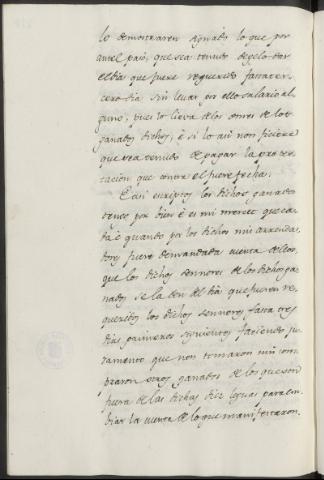 lo demostraren signado lo que por
aquel paso, que sea tenudo de gelo dar
el dia que fuere requerido fasta ter-
cero dia sin levar por ello salario al-
guno, pues lo lieva de los omes de los
ganados dichos, é si lo asi non ficiere
que sea tenudo de pagar la protes-
tacion que contra el fuere fecha.
E asi escriptos los dichos ganados
tengo por bien é es mi merced que ca-
da é quando por los dichos mis arrenda-
dores fuere demandada cuenta dellos,
que los dichos sennores de los dichos ga-
nados se la den del dia que fueren re-
queridos los dichos sennores fasta tres
dias primeros siguientes faciendo ju-
ramento que non tomaron nin com-
praron otros ganados de los que son
fuera de las dichas diez leguas para em-
biar la cuenta de lo que manifestaron.